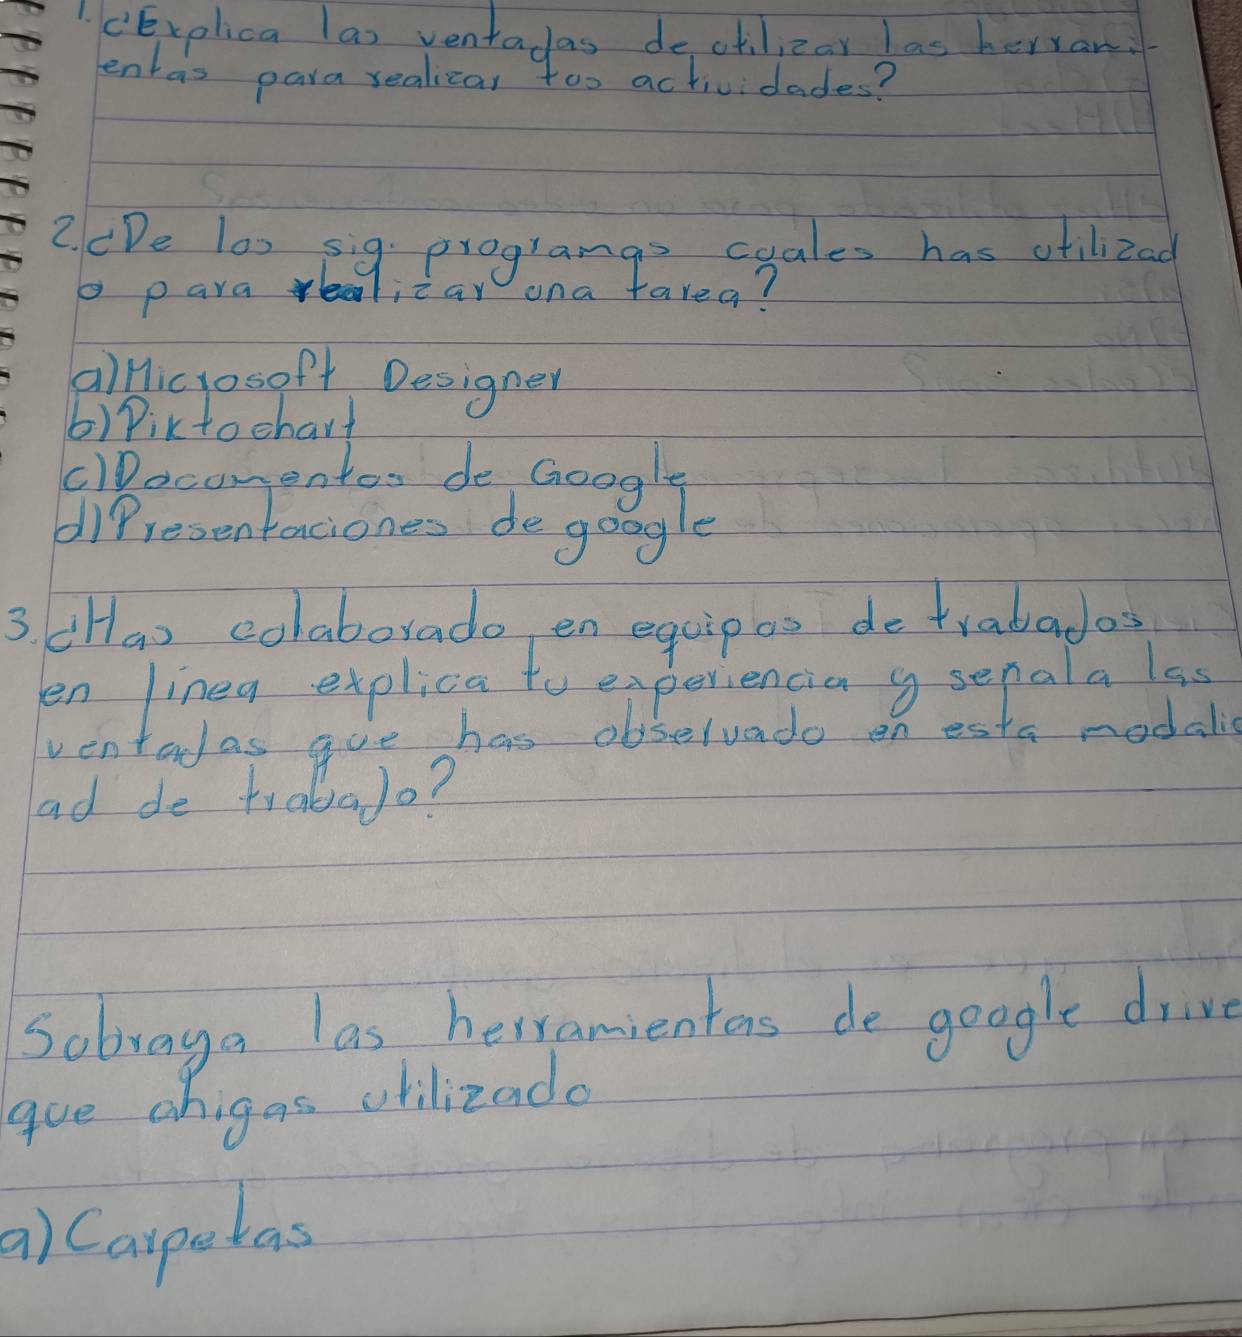 1. ¿Explica las ventajas de utilizar las herrami-
entas para realizar tus actividades?
2. ¿De los sig. programas cuales has utilizad
o para realizar una tarea?
a) Microsoft Designer
b) Piktochart
c) Documentos de Google
d) Presentaciones de google
3. ¿Has colaborado en equipos de trabajos
en linea explica tu experiencia y senala las
ventajas que has observado en esta modalid
ad de trabajo?
Subraya las herramientas de google drive
que ahigas utilizado
a) Carpetas